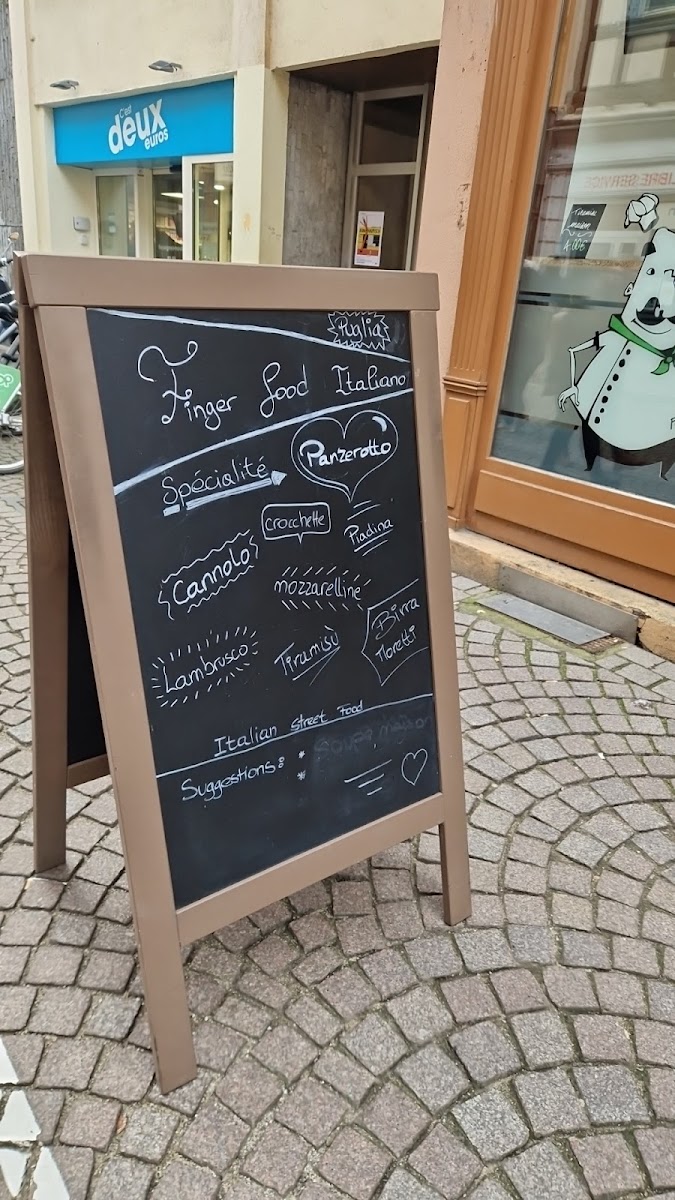 C'est
deux
euros
LIBRE SERVICE
Tiramisu
maison
4.00€
Puglia
Finger food Italiano
Spécialité
Panzerotto
crocchette
Piadina
Cannolo
mozzarelline
Birra
Moretti
Lambrusco
Tiramisù
Italian street Food
Suggestions: *
*